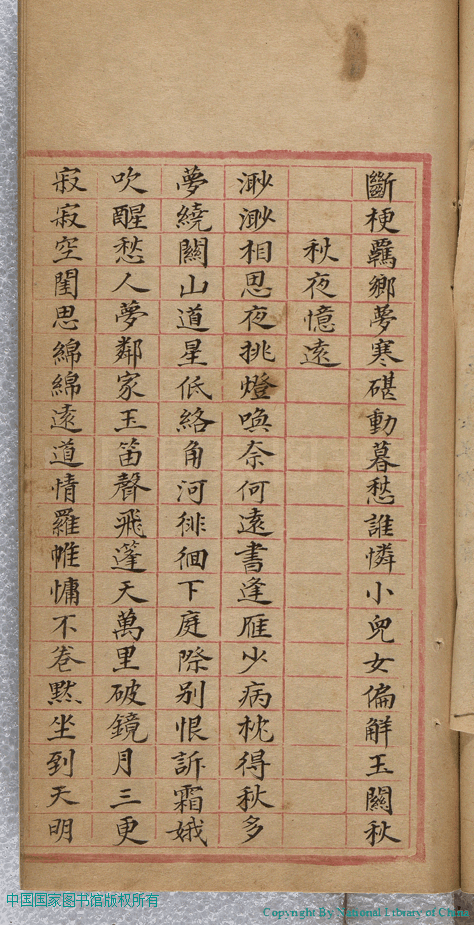 斷梗羈鄉夢寒碪動暮愁誰憐小兒女偏解玉關秋
秋夜憶遠
渺渺相思夜挑燈喚奈何遠書逢雁少病枕得秋多
夢繞關山道星低絡角河徘徊下庭際别恨訴霜娥
吹醒愁人夢鄰家玉笛聲飛蓬天萬里破鏡月三更
寂寂空閨思綿綿遠道情羅帷慵不卷默坐到天明
中国国家图书馆版权所有
Copyright By National Library of China